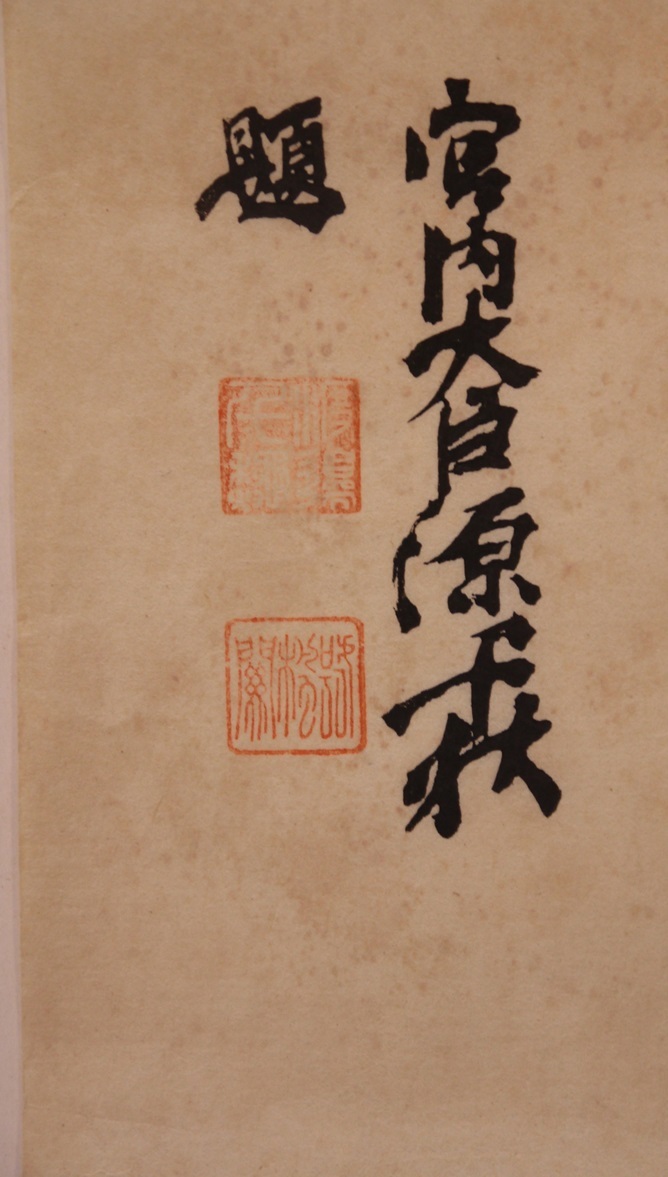 宮内大臣源千秋
題